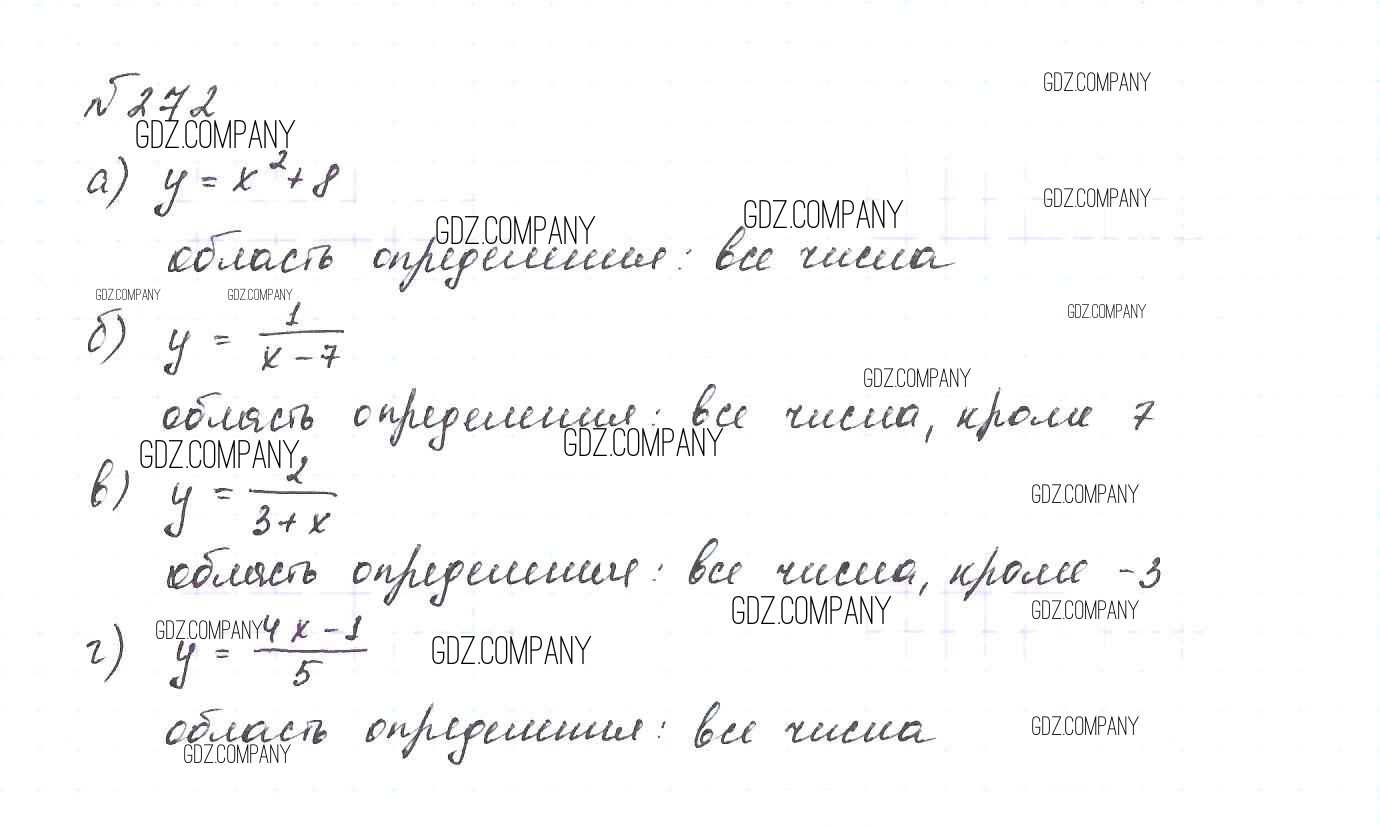 № 272
GDZ.COMPANY
GDZ.COMPANY
а) y = x² + 8
GDZ.COMPANY
GDZ.COMPANY
GDZ.COMPANY
область определения: все числа
GDZ.COMPANY
GDZ.COMPANY
GDZ.COMPANY
б) y = 1/(x − 7)
GDZ.COMPANY
область определения: все числа, кроме 7
GDZ.COMPANY
GDZ.COMPANY
в) y = 2/(3 + x)
GDZ.COMPANY
область определения: все числа, кроме -3
GDZ.COMPANY
GDZ.COMPANY
GDZ.COMPANY
г) y = (4x − 1)/5
GDZ.COMPANY
область определения: все числа
GDZ.COMPANY
GDZ.COMPANY